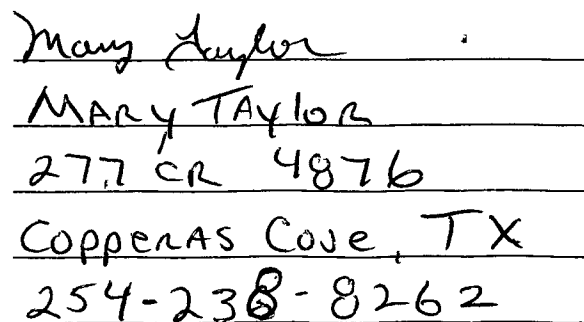 Mary Taylor
MARY TAYLOR
277 CR 4876
COPPERAS COVE, TX
254-238-8262